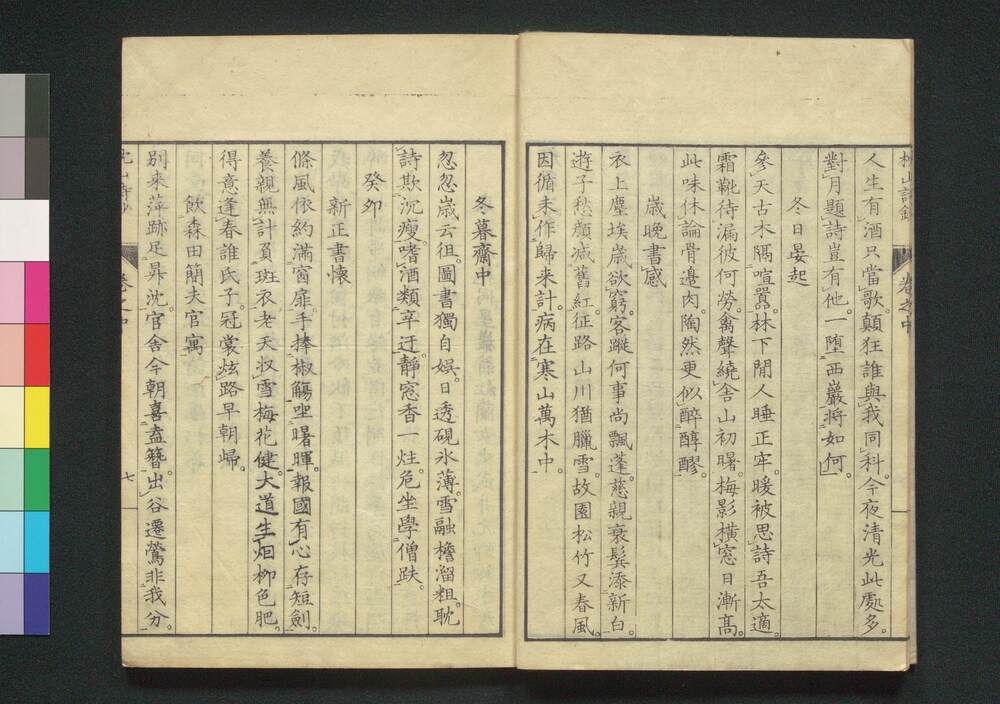 枕山詩鈔 卷之中
人生有酒只當歌。顛狂誰與我同科。今夜清光此處多。
對月題詩豈有他。一墮西巖將如何。
冬日晏起
參天古木隔喧囂。林下閒人睡正牢。暖被思詩吾太適。
霜靴待漏彼何勞。禽聲繞舍山初曙。梅影橫窓日漸高。
此味休論骨邊肉。陶然更似醉醇醪。
歲晩書感
衣上塵埃歲欲窮。客蹤何事尚飄蓬。慈親衰鬂添新白。
遊子愁顔減舊紅。征路山川猶臘雪。故園松竹又春風。
因循未作歸来計。病在寒山萬木中。
冬暮齋中
忽忽歲云徂。圖書獨自娯。日透硯氷薄。雪融檐溜粗。耽
詩欺沉瘦。嗜酒類辛迂。靜窓香一炷。危坐學僧趺。
癸卯
新正書懷
條風依約滿窗扉。手捧椒觴坐曙暉。報國有心存短劍。
養親無計負斑衣。老天雪梅花健。大道生畑柳色肥。
得意逢春誰氏子。冠裳炫路早朝歸。
飲森田簡夫官寓
別來萍跡足昇沈。官舍今朝喜盍簪。出谷遷鶯非我分。
枕山詩鈔 卷之中 七